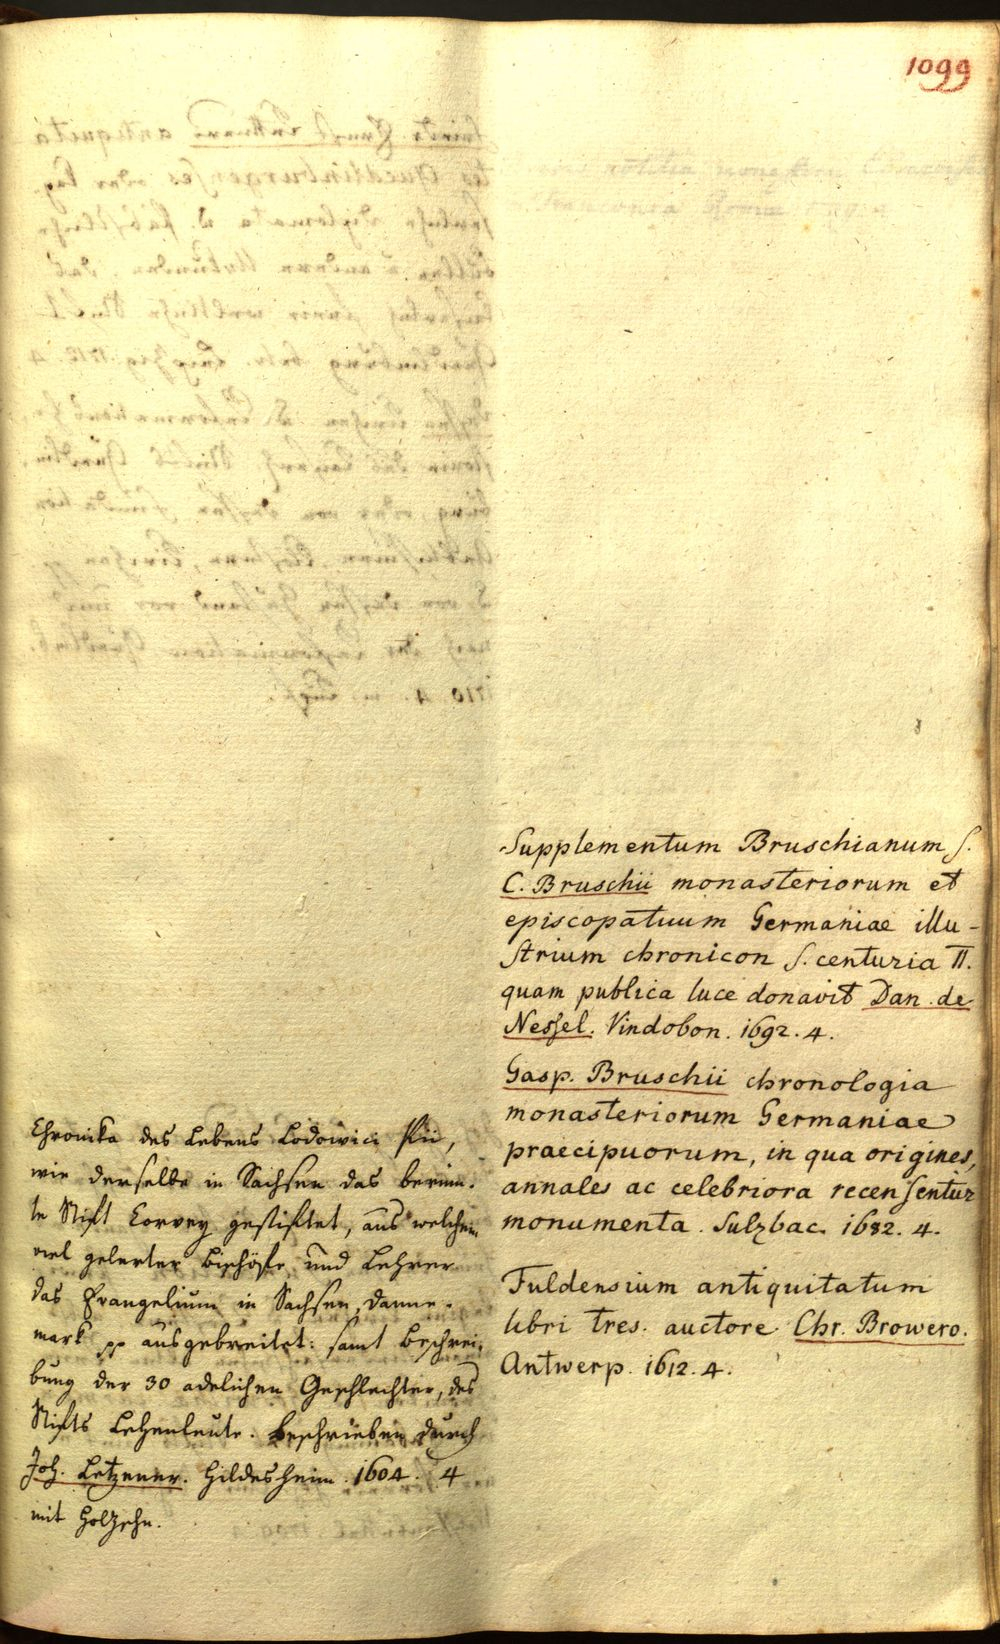 1099
Supplementum Bruschianum s.
C. Bruschii monasteriorum et
episcopatuum Germaniae illu-
strium chronicon s. centuria II.
quam publica luce donavit Dan. de
Nessel. Vindobon. 1692. 4.
Gasp. Bruschii chronologia
monasteriorum Germaniae
praecipuorum, in qua origines,
annales ac celebriora recensentur
monumenta. Sulzbac. 1682. 4.
Fuldensium antiquitatum
libri tres. auctore Chr. Browero.
Antwerp. 1612. 4.
Chronika des Lebens Lodowici Pii,
wie derselbe in Sachsen das berüm-
te Stift Corvey gestiftet, aus welchem
viel gelerter Bischöfe und Lehrer
das Evangelium in Sachsen, Danne-
mark pp ausgebreitet: samt Beschrei-
bung der 30 adelichen Geschlechter, des
Stifts Lehenleute. Beschrieben durch
Joh. Letzener. Hildesheim. 1604. 4
mit Holzschn.